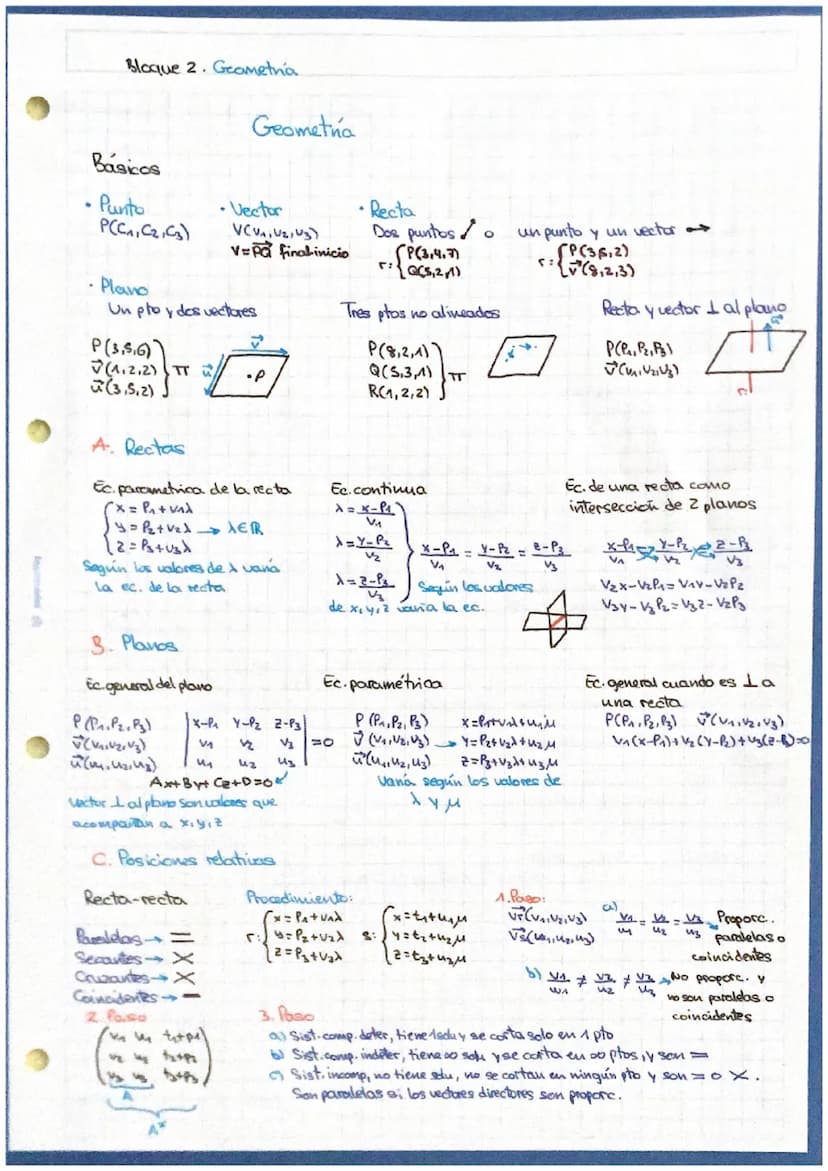 Bloque 2. Geometría
Geometría
Básicos
· Punto
P(C₁,C₂,C₃)
· Vector
V(V₁,V₂,V₃)
V=PQ final-inicio
· Recta
Dos puntos o un punto y un vector
r: { P(3,4,7)
Q(5,2,1)
r: { P(3,5,2)
v(8,2,3)
· Plano
Un pto y dos vectores
P(3,5,6)
v(1,2,2) } π
u(3,5,2)
v
u
.P
Tres ptos no alineados
P(8,2,1)
Q(5,3,1) } π
R(1,2,2)
Recta y vector ⊥ al plano
P(P₁,P₂,P₃)
v(v₁,v₂,v₃)
r
A. Rectas
Ec. parametrica de la recta
x = P₁+V₁λ
y = P₂+V₂λ → λ∈ℝ
z = P₃+V₃λ
Según los valores de λ varía
la ec. de la recta
Ec. continua
λ = x-P₁/V₁
λ = y-P₂/V₂
λ = z-P₃/V₃
x-P₁/V₁ = y-P₂/V₂ = z-P₃/V₃
Según los valores
de x,y,z varía la ec.
Ec. de una recta como
interseccion de 2 planos
x-P₁/V₁ = y-P₂/V₂ = z-P₃/V₃
V₂x-V₂P₁=V₁y-V₁P₂
V₃y-V₃P₂=V₂z-V₂P₃
B. Planos
Ec. general del plano
P(P₁,P₂,P₃)
v(v₁,v₂,v₃)
u(u₁,u₂,u₃)
| x-P₁ y-P₂ z-P₃ |
| V₁ V₂ V₃ | =0
| u₁ u₂ u₃ |
Ax+By+Cz+D=0
vector ⊥ al plano son valores que
acompañan a x,y,z
Ec. paramétrica
P(P₁,P₂,P₃) x=P₁+V₁λ+u₁μ
v(V₁,V₂,V₃) → y=P₂+V₂λ+u₂μ
u(u₁,u₂,u₃) z=P₃+V₃λ+u₃μ
Varía según los valores de
λ y μ
Ec. general cuando es ⊥ a
una recta
P(P₁,P₂,P₃) v(v₁,v₂,v₃)
V₁(x-P₁)+V₂(y-P₂)+V₃(z-P₃)=0
C. Posiciones relativas
Recta-recta
Paralelas →
Secantes →
Cruzantes →
Coincidentes →
Procedimiento:
r: { x=P₁+V₁λ
y=P₂+V₂λ
z=P₃+V₃λ
s: { x=t₁+u₁μ
y=t₂+u₂μ
z=t₃+u₃μ
1. Paso:
Vr(v₁,v₂,v₃)
Vs(u₁,u₂,u₃)
a) V₁/u₁ = V₂/u₂ = V₃/u₃ → Proporc.
paralelas o
coincidentes
b) V₁/u₁ ≠ V₂/u₂ ≠ V₃/u₃ → No proporc. y
no son paralelas o
coincidentes
2. Paso
V₁ u₁ t₁+P₁
V₂ u₂ t₂+P₂
V₃ u₃ t₃+P₃
A
A*
3. Paso
a) Sist. comp. deter, tiene 1 solu y se corta solo en 1 pto
b) Sist. comp. indeter, tiene ∞ solu y se corta en ∞ ptos, y son =
c) Sist. incomp, no tiene solu, no se cortan en ningún pto y son = o X.
Son paralelas si los vectores directores son proporc.